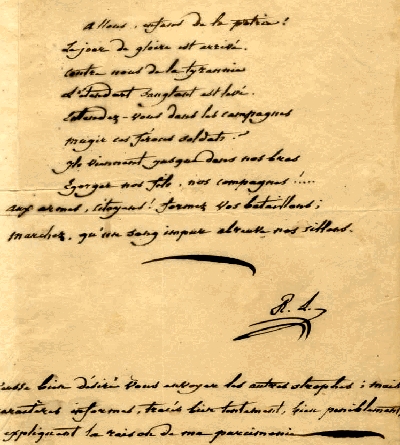 Allons, enfans de la patrie!
Le jour de gloire est arrivé.
Contre nous de la tyrannie
L'étendart sanglant est levé.
Entendez-vous dans les campagnes
mugir ces féroces soldats?
Ils viennent jusque dans nos bras
Egorger nos fils, nos compagnes!....
aux armes, citoyens! formez vos bataillons;
marchez, qu'un sang impur abreuve nos sillons.
R. L.
eusse bien désiré vous envoyer les autres strophes; mais
aractères informes, tracés bien lentement, bien péniblement,
expliquent la raison de ma parcimonie